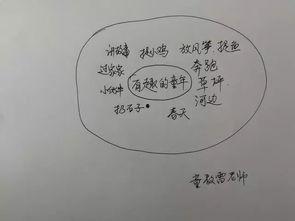 讲故事 捉小鸡 放风筝 捉鱼
过家家 奔跑
有趣的童年 草坪
小伙伴 河边
扔石子 春天
童敖雷老师